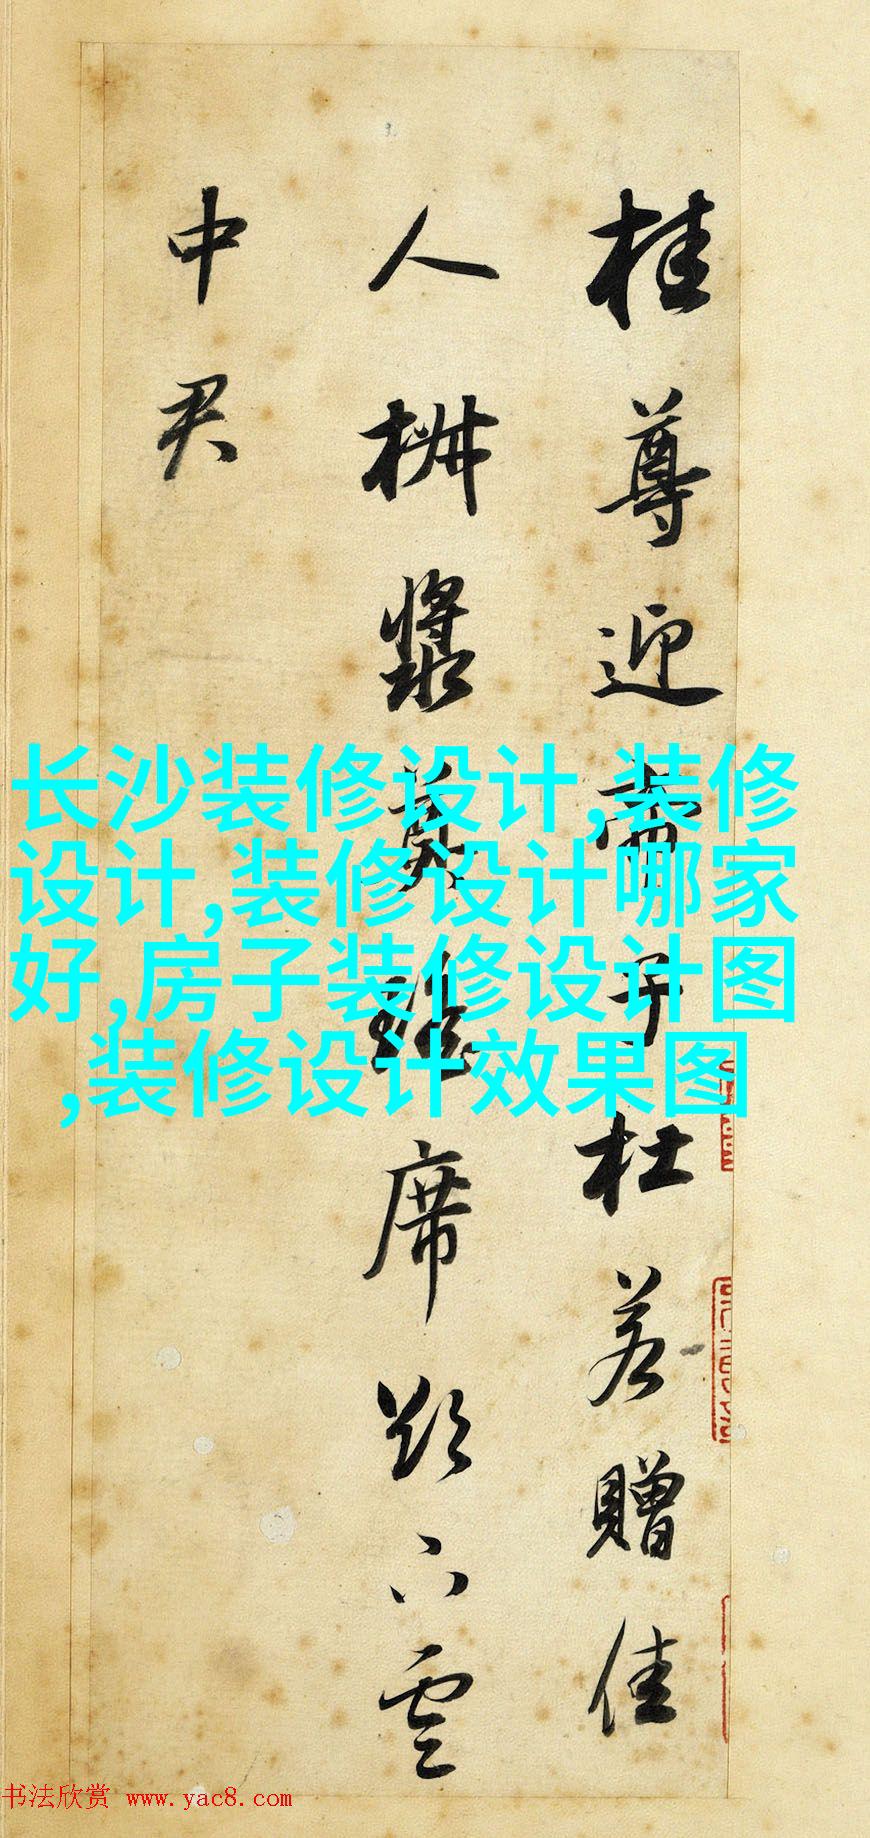 桂尊迎帝子杜若贈佳
人椒漿奠瑤席欲下雲
中君
长沙装修设计,装修
设计,装修设计哪家
好,房子装修设计图
,装修设计效果图
书法欣赏 www.yac8.com